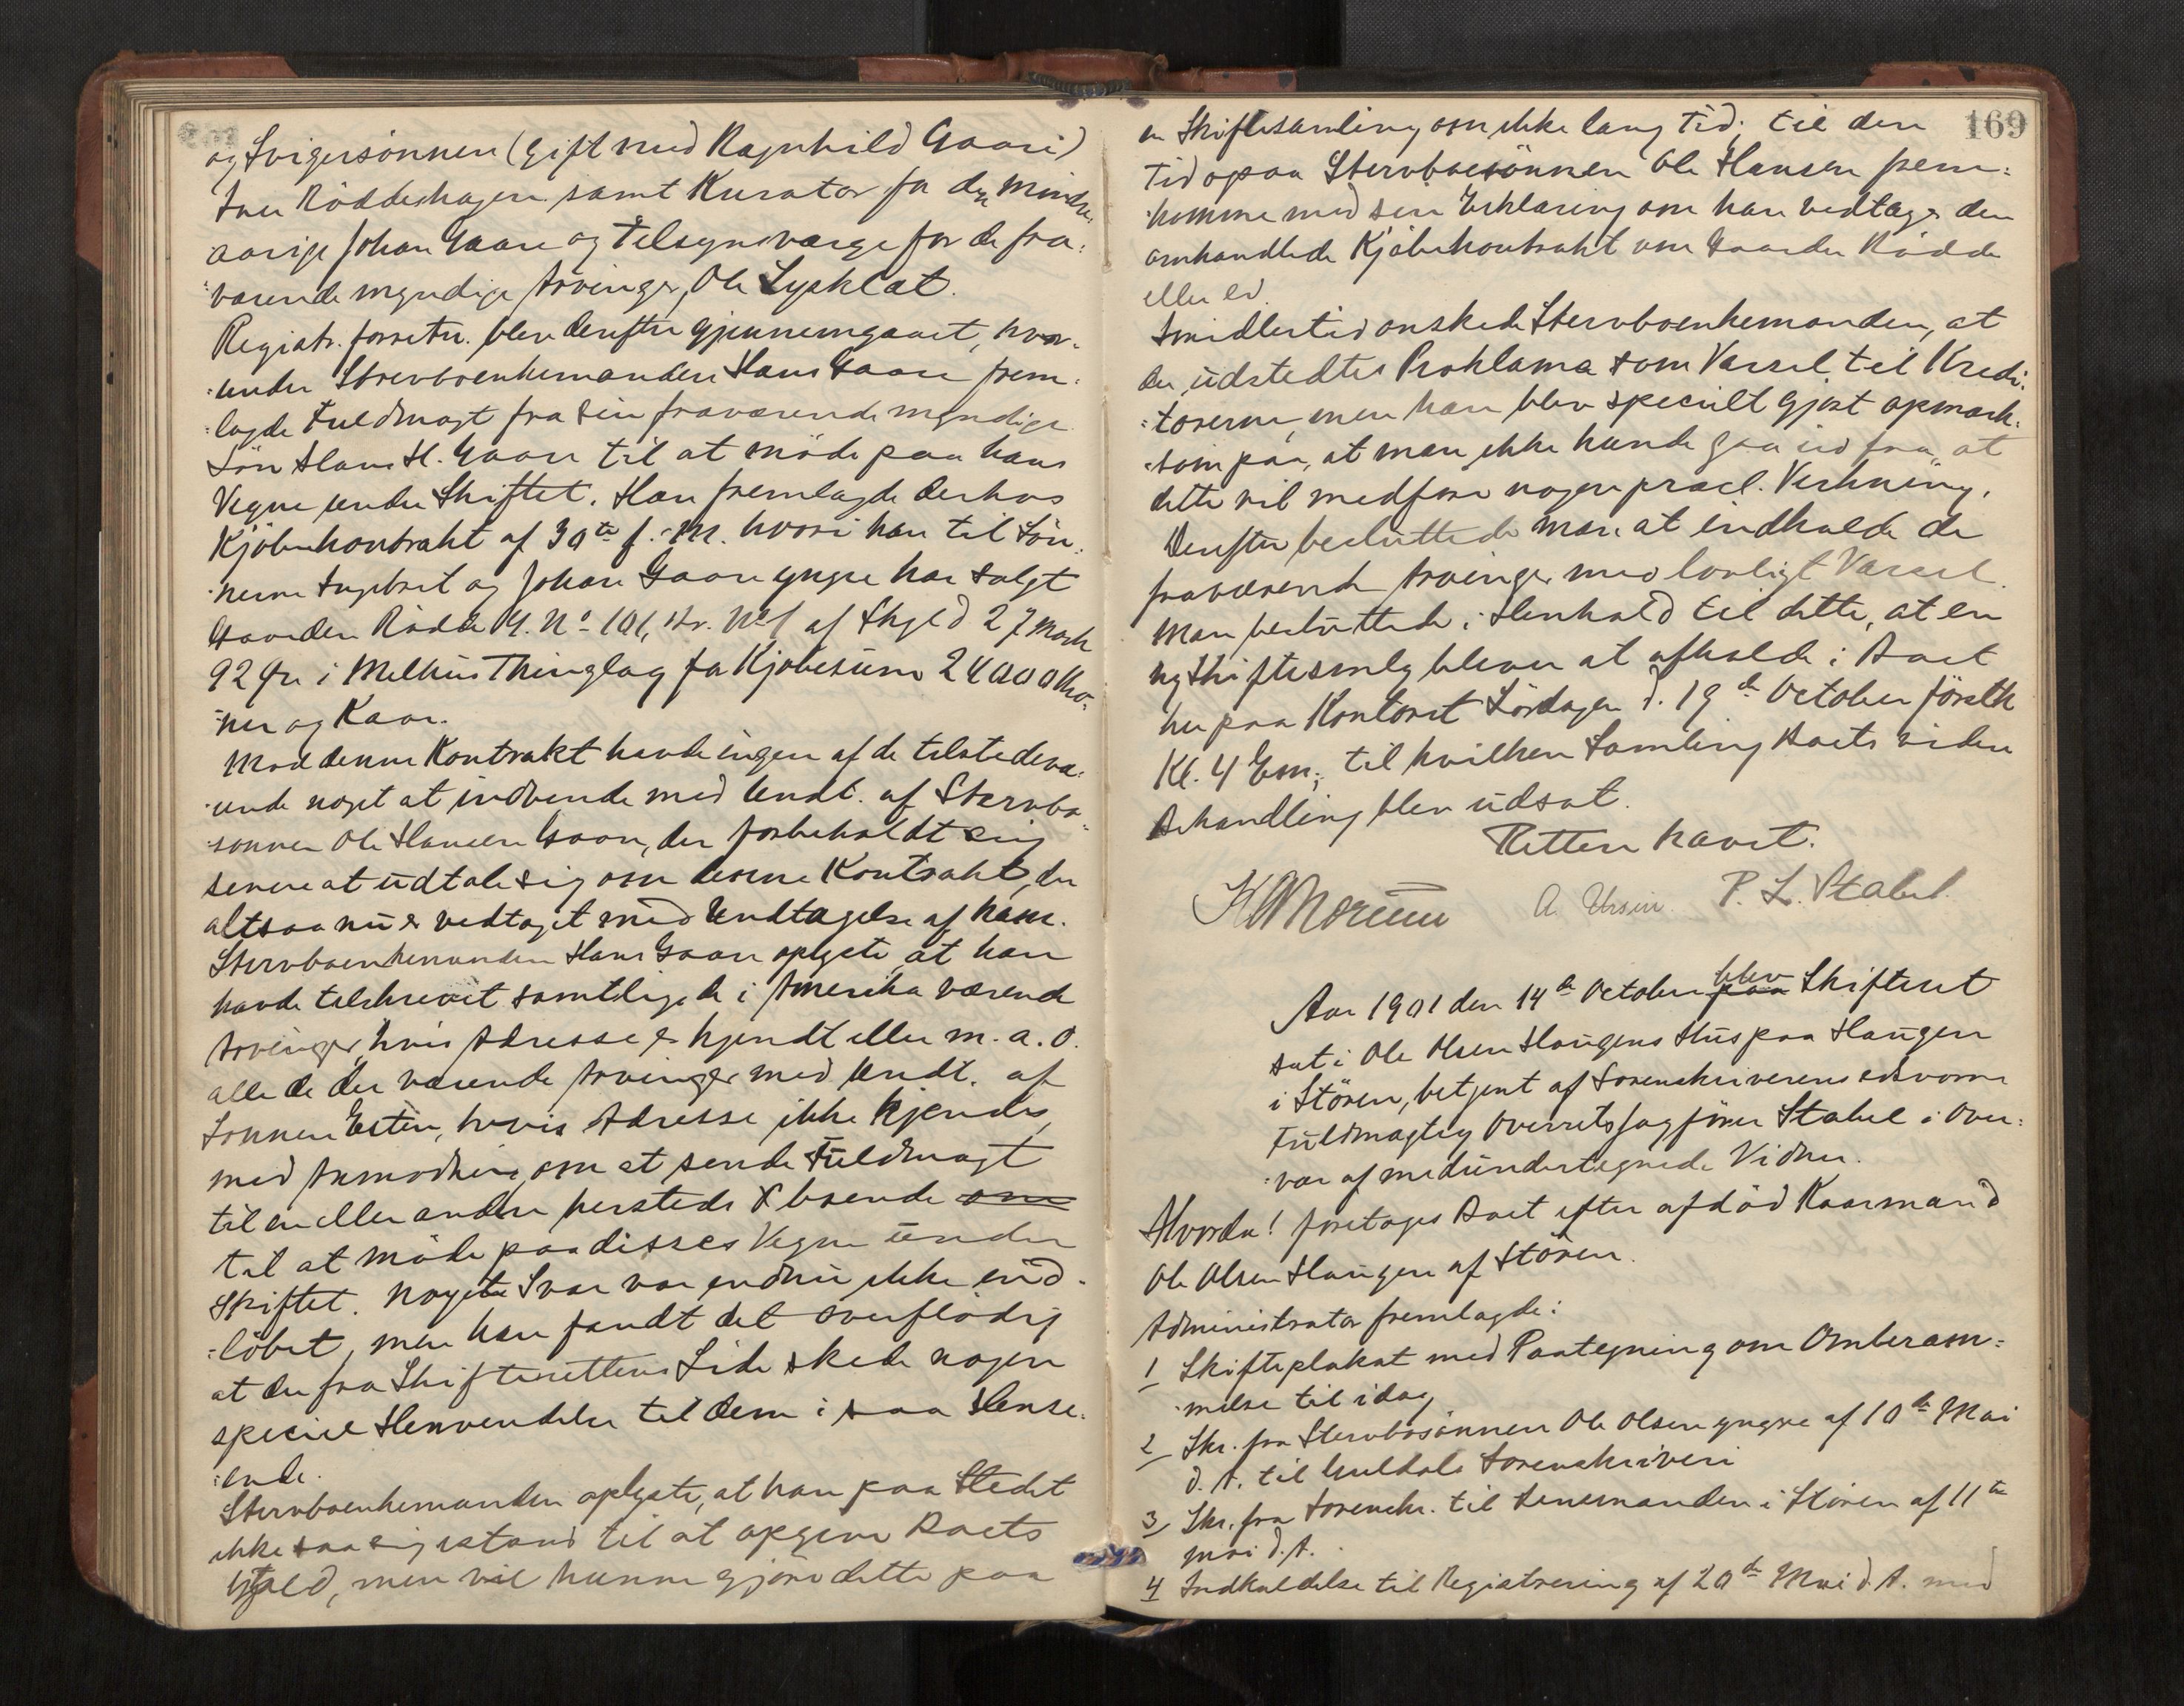 og Svigersönnen (gift med Ragnhild Gaare)
Iver Röddeshagen samt Kurator for den Mindre-
aarige Johan Gaare og Tilsynsværge for de fra:
:værende myndige Arvinger, Ole Lysklæt.
Registr. forretn. blev derefter gjennemgaaet, hvor-
:under Stervboenkemanden Hans Gaare frem:
:lagde Fuldmagt fra sin fraværende myndige
Sön Hans H. Gaare til at möde paa hans
Vegne under Skiftet. Han fremlagde derhos
Kjöbekontrakt af 30te f. M. hvori han til Sön:
nerne Ingebret og Johan Gaare yngre har solgt
Gaarden Rödde G. No 101, Br. No 1 af Skyld 27 Mark
92 Öre i Melhus Thinglag for Kjøbesum 24000 Kro-
:ner og Kaar.
Mod denne Kontrakt havde ingen af de tilstedevæ-
:rende noget at indvende med Undt. af Stervbo-
:sønnen Ole Hansen Gaare, der forbeholdt sig
senere at udtale sig om denne Kontrakt, der
altsaa nu er vedtaget med Undtagelse af ham.
Stervboenkemanden Hans Gaare oplyste, at han
havde tilskrevet samtlige de i Amerika værende
Arvinger, hvis Adresse er kjendt eller m. a. O.
alle de der værende Arvinger med Undt. af
Sønnen Esten, hvis Adresse ikke kjendes,
med Anmodning om at sende Fuldmagt
til en eller anden hersteds boende om
til at möde paa disses Vegne under
Skiftet. Noget Svar var endnu ikke ind-
:löbet, men han fandt det overflödig
at der fra Skifterettens Side skede nogen
speciel Henvendelse til dem i saa Hense-
:ende.
Stervboenkemanden oplyste, at han paa Stedet
ikke saa sig istand til at opgive Boets
Gjæld, men vil kunne gjöre dette paa
169
en Skiftesamling om ikke lang Tid; til den
Tid ogsaa Stervbosönnen Ole Hansen frem:
:komme med sin Erklæring om han vedtager den
omhandlede Kjöbekontrakt om Gaarden Rödde
eller ei.
Imidlertid ønskede Stervboenkemanden, at
der udstedtes Proklama som Varsel til Kredi:
:torerne, men han blev specielt gjort opmærk-
:som paa, at man ikke kunde gaa ud fra, at
dette vil medføre nogen præcl. Virkning.
Derefter besluttede man at indkalde de
fraværende Arvinger med lovligt Varsel.
Man besluttede i Henhold til dette, at en
ny Skiftesmlg bliver at afholde i Boet
her paa Kontoret Lördagen d. 19de October förstk
Kl. 4 Em., til hvilken Samling Boets videre
Behandling blev udsat.
Retten hævet.
A. Ursin. P. L. Stabel.
Aar 1901 den 14de October paa blev Skifteret
sat i Ole Olsen Haugens Hus paa Haugen
i Stören, betjent af Sorenskriverens edsvorne
Fuldmægtig Overretssagförer Stabel i Over:
:vær af medundertegnede Vidner.
Hvorda! foretages Boet efter afdöd Kaarmand
Ole Olsen Haugen af Stören.
Administrator fremlagde:
1 Skifteplakat med Paategning om Omberam=
:melse til idag
2 Skr. fra Stervbosönnen Ole Olsen yngre af 10de Mai
d. A. til Guldals Sorenskriveri
3 Skr. fra Sorenskr. til Lensmanden i Stören af 11te
Mai d. A.
4 Indkaldelse til Registrering af 20de Mai d. A. med